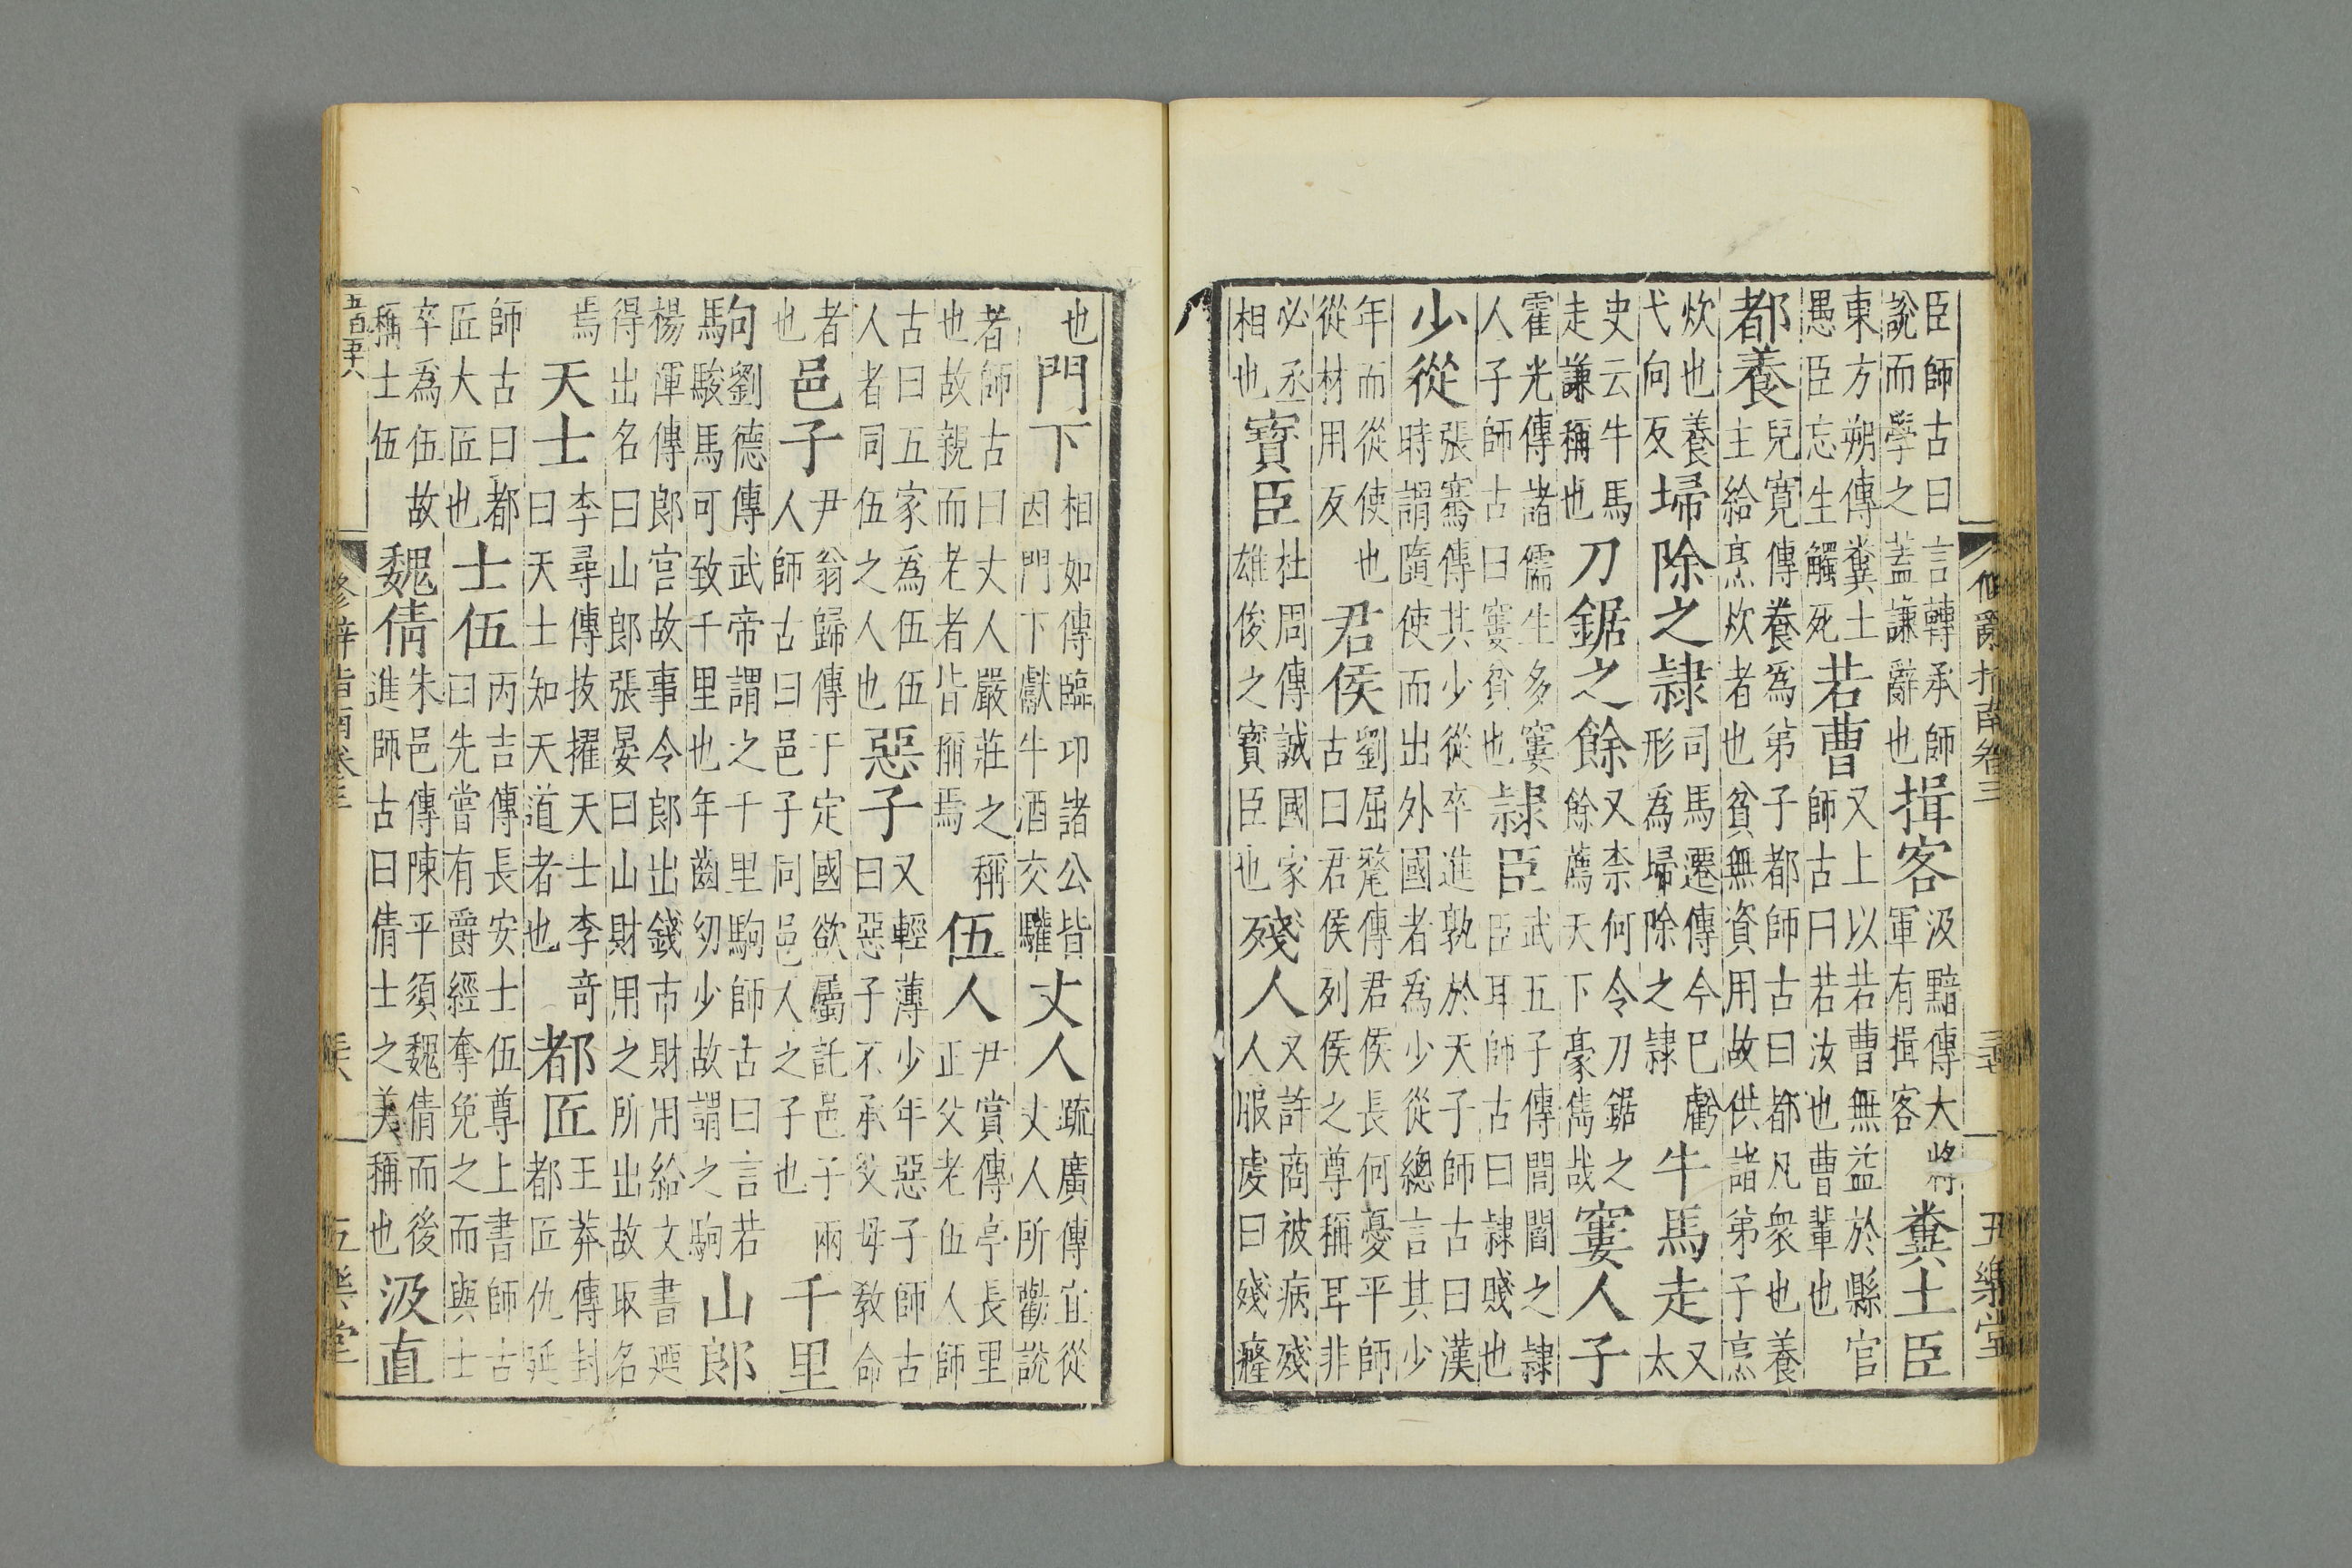 修辭指南卷三
五樂堂
臣師古曰言轉承師說而學之蓋謙辭也揖客汲黯傳大將軍有揖客糞土臣
東方朔傳糞土愚臣忘生觸死若曹又上以若曹無益於縣官師古曰若汝也曹輩也
都養兒寛傳養爲弟子都師古曰都凡衆也養主給烹炊者也貧無資用故供諸弟子烹
炊也養弋向反埽除之隷司馬遷傳今已虧形爲埽除之隷牛馬走又太
史云牛馬走謙稱也刀鋸之餘又柰何令刀鋸之餘薦天下豪雋哉窶人子
霍光傳諸儒生多窶人子師古曰窶貧也隷臣武五子傳閭閻之隷臣耳師古曰隷賤也
少從張騫傳其少從卒進孰於天子師古曰漢時謂隨使而出外國者爲少從總言其少
年而從使也從材用反君侯劉屈氂傳君侯長何憂平師古曰君侯列侯之尊稱耳非
必丞相也寶臣杜周傳誠國家雄俊之寶臣也殘人又許商被病殘人服虔曰殘癃
也門下相如傳臨卭諸公皆因門下獻牛酒交驩丈人疏廣傳宜從丈人所勸說
者師古曰丈人嚴莊之稱也故親而老者皆稱焉伍人尹賞傳亭長里正父老伍人師
古曰五家爲伍伍人者同伍之人也惡子又輕薄少年惡子師古曰惡子不承父母教命
者也邑子尹翁歸傳于定國欲屬託邑子兩人師古曰邑子同邑人之子也千里
駒劉德傳武帝謂之千里駒師古曰言若駿馬可致千里也年齒幼少故謂之駒山郎
楊惲傳郎官故事令郎出錢市財用給文書廼得出名曰山郎張晏曰山財用之所出故取名
焉天士李尋傳拔擢天士李竒曰天士知天道者也都匠王莽傳封都匠仇延
師古曰都匠大匠也士伍丙吉傳長安士伍尊上書師古曰先嘗有爵經奪免之而與士
卒爲伍故稱士伍魏倩朱邑傳陳平須魏倩而後進師古曰倩士之美稱也汲直
修辭指南卷三
五樂堂